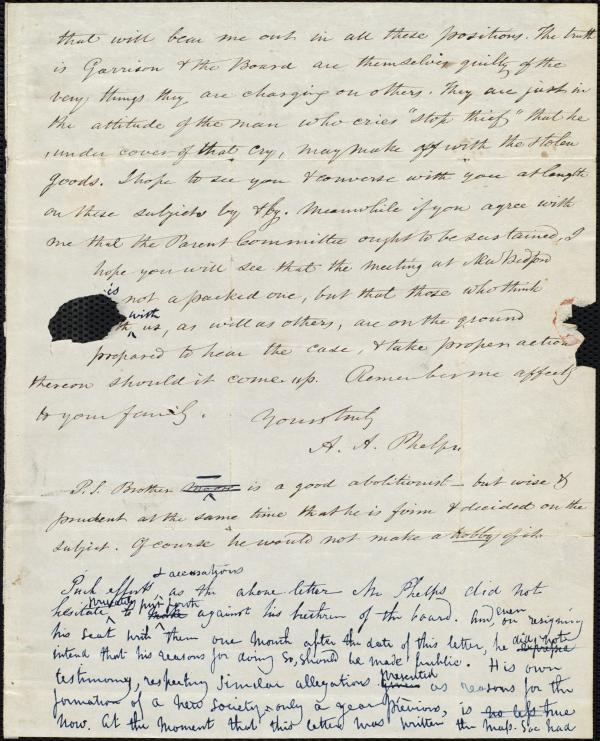 that will bear me out in all these positions. The truth
is Garrison & the Board are themselves guilty of the
very things they are charging on others. They are just in
the attitude of the man who cries "stop thief," that he
, under cover of that cry, may make off with the stolen
goods. I hope to see you & converse with you at length
on these subjects by & by. Meanwhile if you agree with
me that the Parent Committee ought to be sustained, I
hope you will see that the meeting at New Bedford
is not a packed one, but that those who think
with us, as well as others, are on the ground
prepared to hear the case, & take proper action
thereon should it come up. Remember me affectly
to your family.
Yours truly
A. A. Phelps
P.S. Brother is a good abolitionist - but wise &
prudent at the same time that he is firm & decided on the
subject. Of course he would not make a hobby of it.
Such efforts & accusations as the above letter Mr Phelps did not
hesitate privately to put forth against his brethren of the board. And, even on resigning
his seat with them one month after the date of this letter, he did not
intend that his reasons for doing so, should be made public. His own
testimony, respecting similar allegations presented as reasons for the
formation of a new society only a year previous, is no less true
now. At the moment that this letter was written the Mass. Soc had